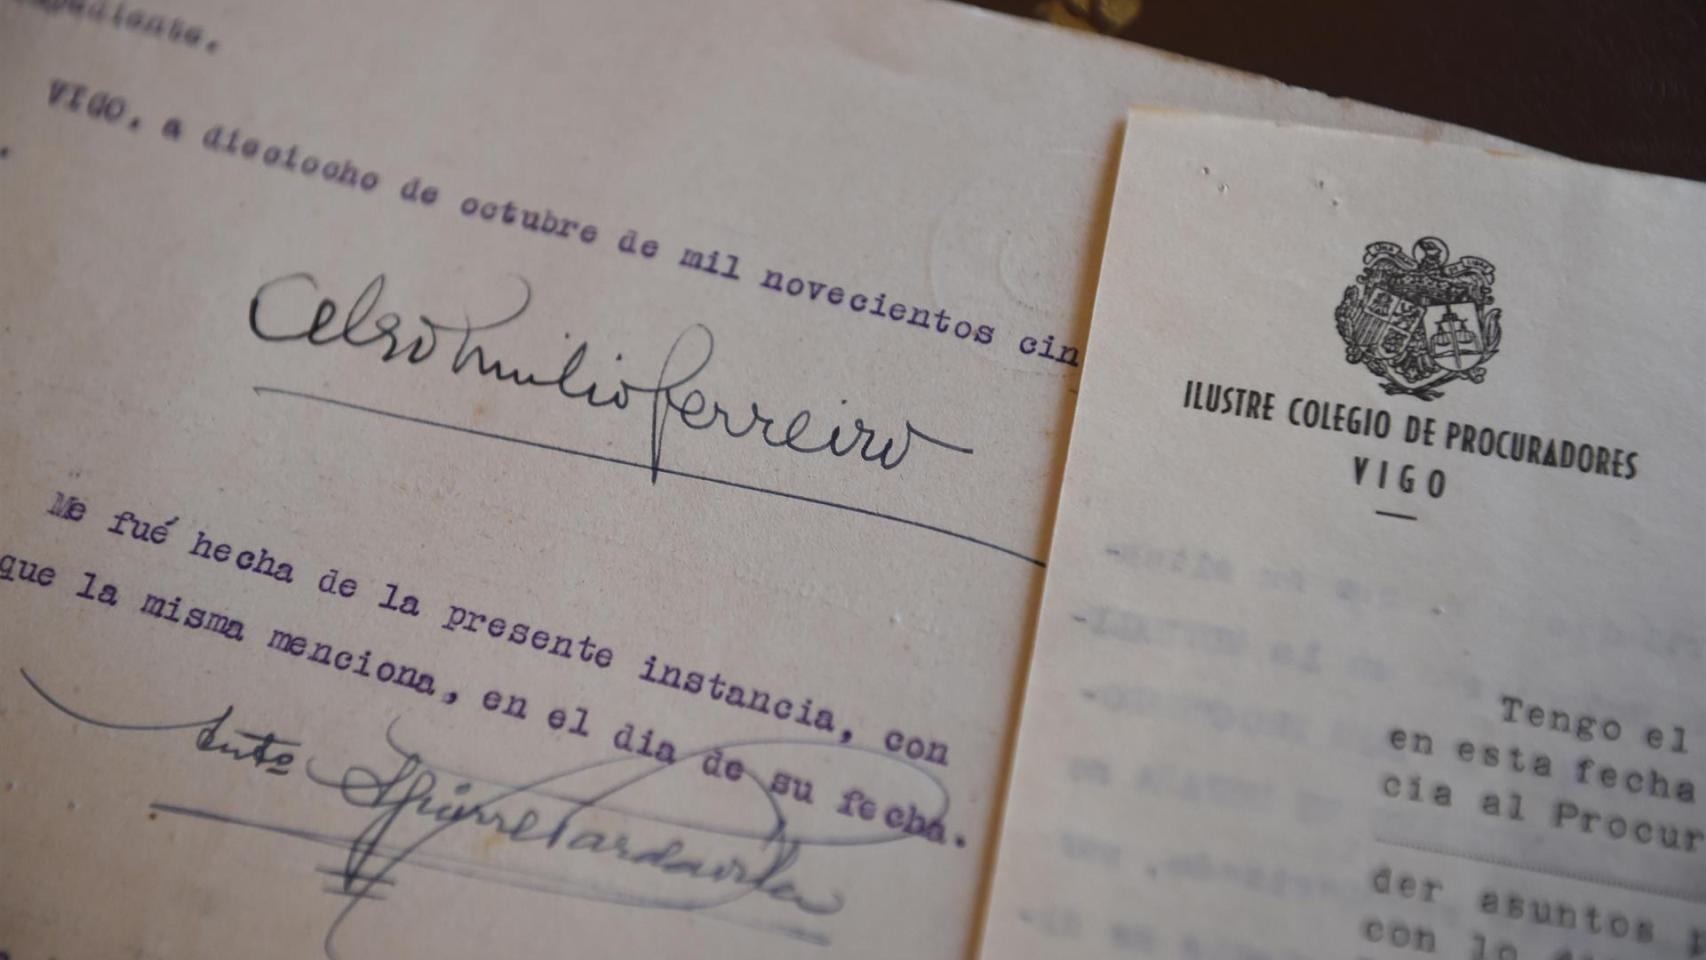 expediente.
VIGO, a dieciocho de octubre de mil novecientos cin
Celso Emilio Ferreiro
Me fué hecha de la presente instancia, con
que la misma menciona, en el día de su fecha.
ILUSTRE COLEGIO DE PROCURADORES
VIGO
Tengo el
en esta fecha
cia al Procur
der asuntos
con lo